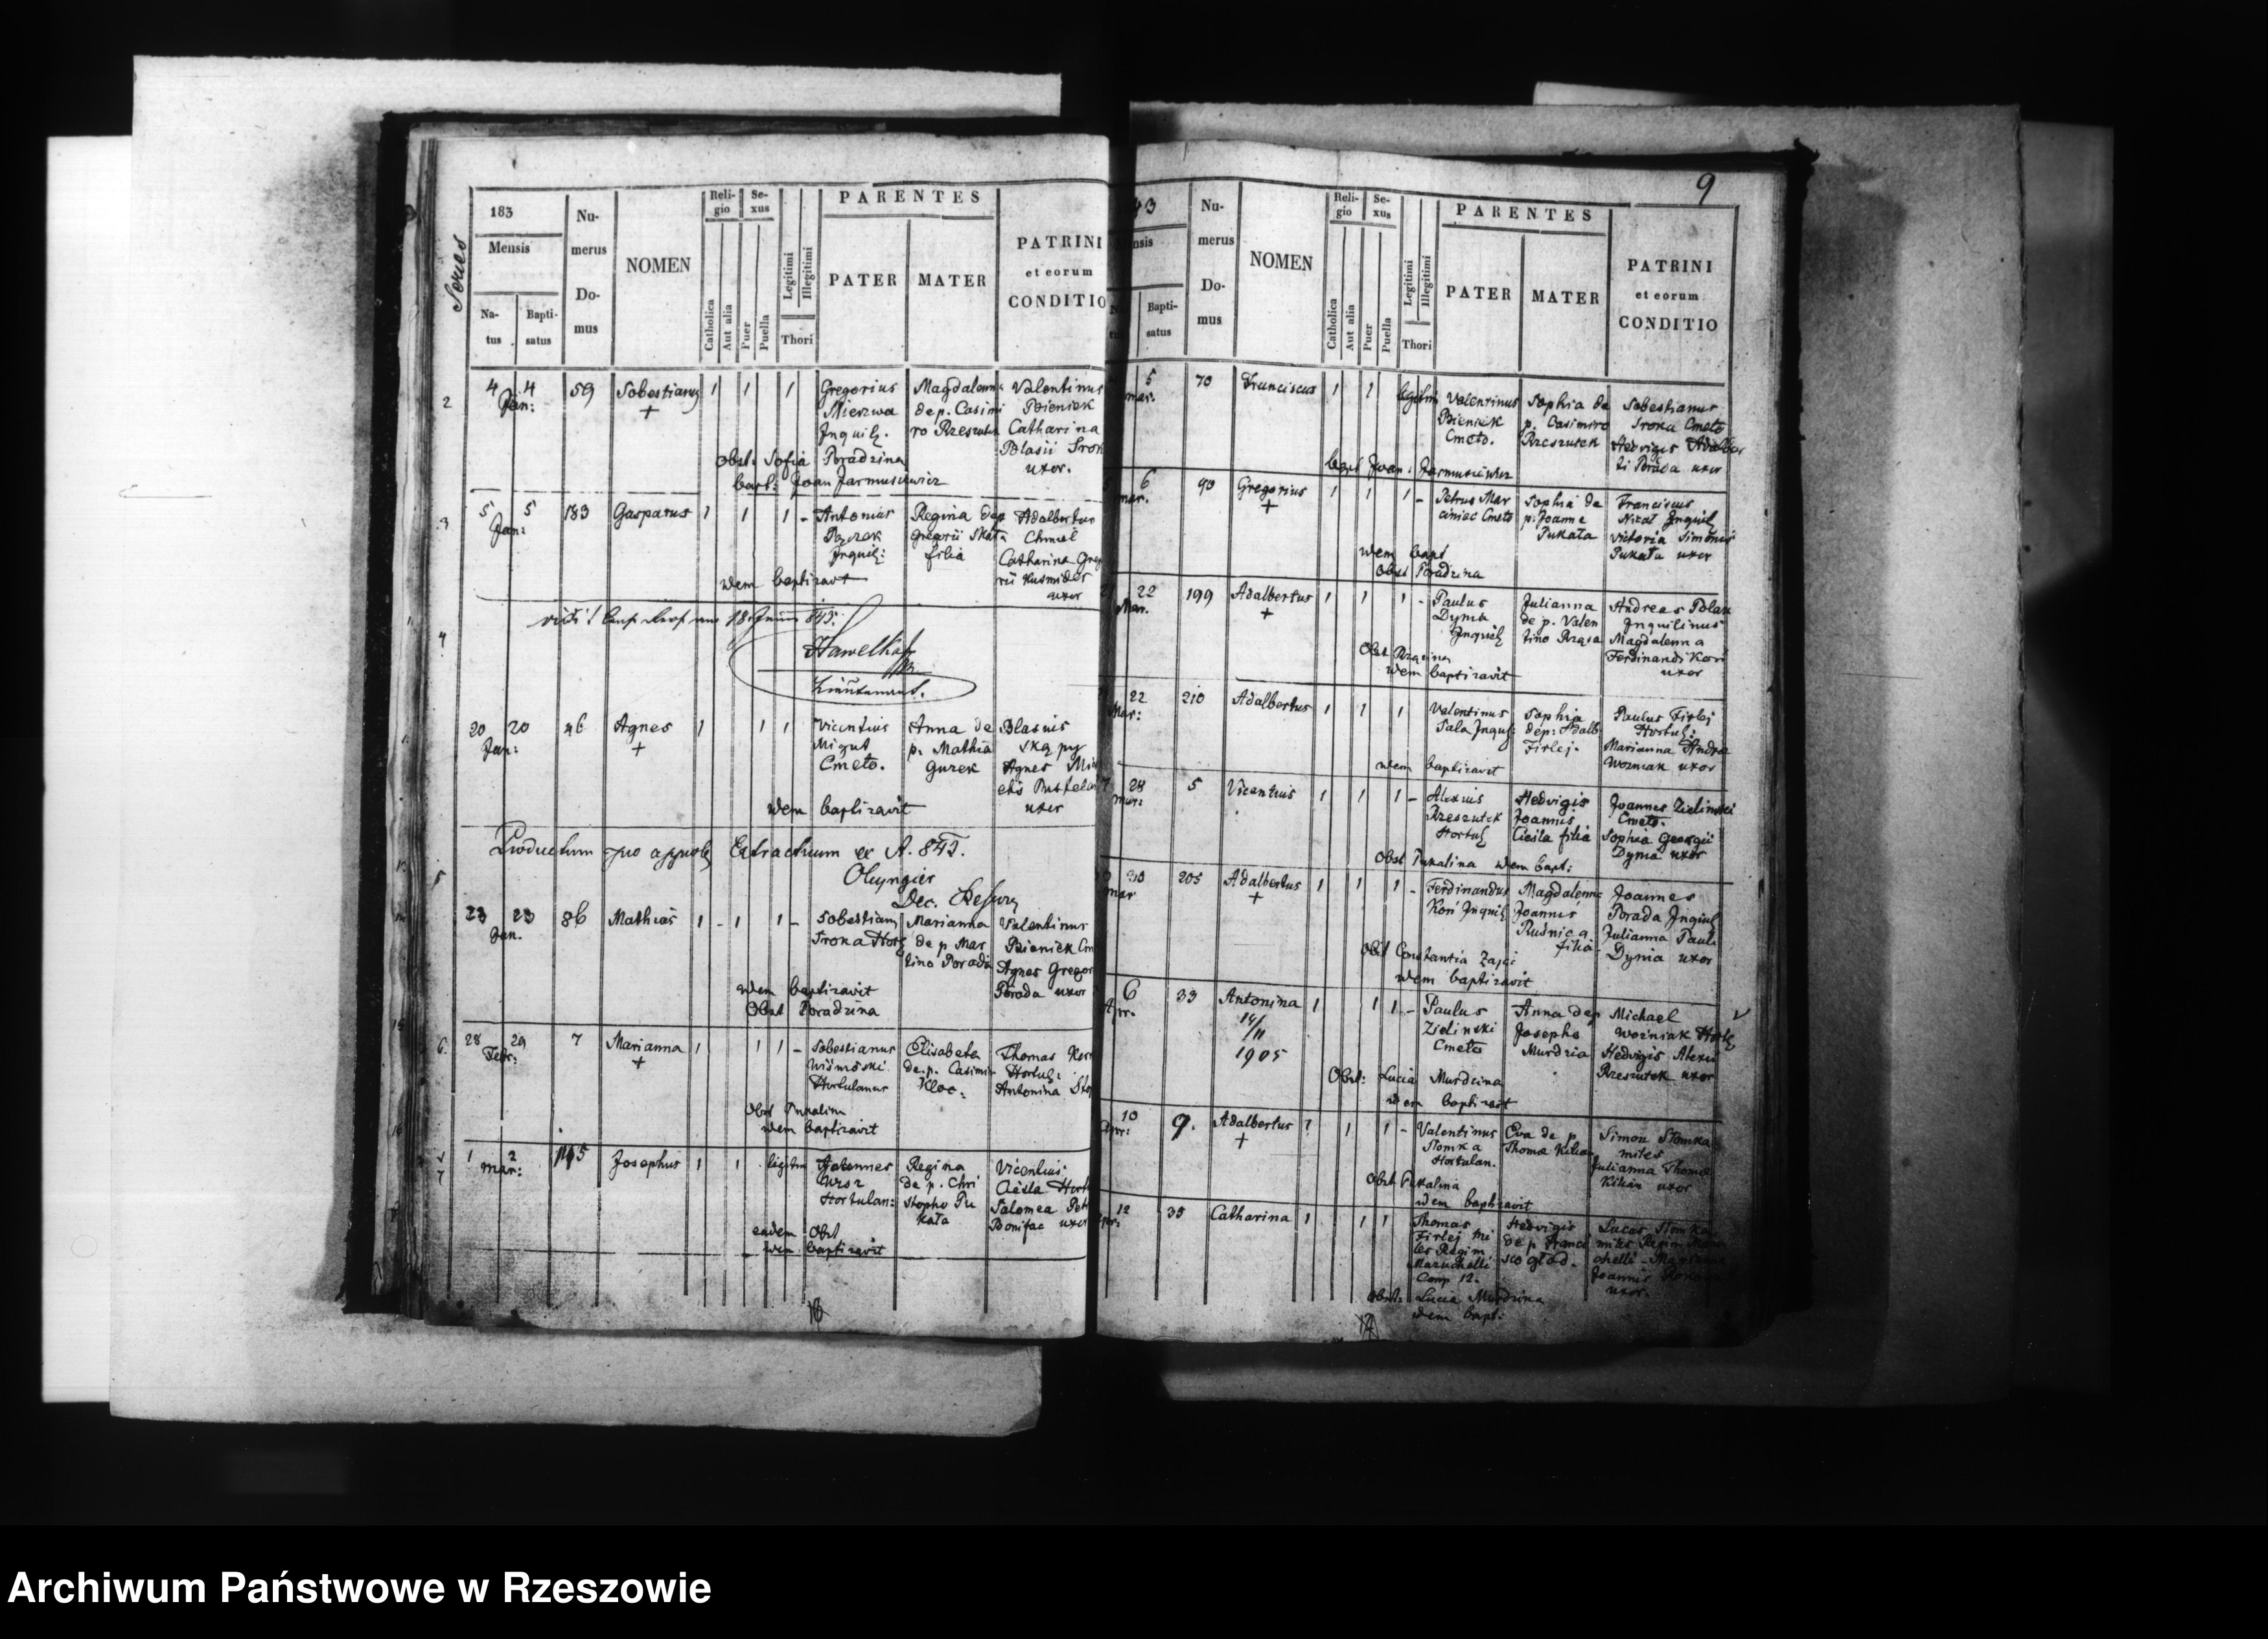 Series
183
Mensis
Na-
tus
Bapti-
satus
Nu-
merus
Do-
mus
NOMEN
Reli-
gio
Catholica
Aut alia
Se-
xus
Puer
Puella
Legitimi
Illegitimi
Thori
PARENTES
PATER
MATER
PATRINI
et eorum
CONDITIO
2
4 4
Jan:
59
Sobestianus
+
1 1 1
Gregorius
Mierzwa
Inquil.
Magdalenna
de p. Casimi
ro Rzeszutek
Valentinus
Pieniek
Catharina
Blasii Srok
uxor.
Obst: Sofia Poradzina
bapt: Joan Jarmusiewicz
3
5 5
Jan:
183
Gasparus
1 1 1 -
Antonius
Inquil:
Regina dep
Gregorii Skała
filia
Adalbertus
Chmiel
Catharina Greg
rii Kusmider
uxor
idem baptizavit
4
18 Junii 843.
Hawelka
20 20
Jan:
46
Agnes
+
1 1 1
Vicentius
Migut
Cmeto.
Anna de
p. Mathia
Gurek
Blasius
Agnes
uxor
idem baptizavit
Productum pro Extractuum ex A. 842.
5
23 23
Jan.
86
Mathias
1 - 1 1 -
Sobestianus
Sroka Hort
Marianna
de p Mar
tino Porada
Valentinus
Pieniek Cm
Agnes Gregor
Porada uxor
idem baptizavit
Obst Poradzina
6
28 29
Febr:
7
Marianna
+
1 1 1 -
Sobestianus
Hortulanus
Elisabeta
de p. Casimir
Kloc.
Thomas
Hortul:
Antonina
Obst Pukalina
idem baptizavit
7
1 2
Mar:
Josephus
1 1 legitim
Joannes
Hortulan:
Regina
de p. Chri
stopho Pu
kała
Vicentius
Cieśla Hort
Salomea Pet
Bonifac uxor
eadem Obst
idem baptizavit
9
43
nsis
Bapti-
satus
Nu-
merus
Do-
mus
NOMEN
Reli-
gio
Catholica
Aut alia
Se-
xus
Puer
Puella
Legitimi
Illegitimi
Thori
PARENTES
PATER
MATER
PATRINI
et eorum
CONDITIO
5
mar.
70
Franciscus
1 1 legitim
Valentinus
Pieniek
Cmeto.
Sophia de
p. Casimiro
Rzeszutek
Sobestianus
Sroka Cmeto
Hedvigis Adalber
ti Porada uxor
bapt Joan: Jarmusiewicz
6
mar.
90
Gregorius
+
1 1 1 -
Petrus Mar
ciniec Cmeto
Sophia de
p: Joanne
Pukała
Franciscus
Nizał Inquil
Victoria Simonis
Pukała uxor
idem bapt
Obst Poradzina
22
Mar.
199
Adalbertus
+
1 1 1 -
Paulus
Dynia
Inquil
Julianna
de p. Valen
tino Rząsa
Andreas Polak
Inquilinus
Magdalenna
Ferdinandi Koń
uxor
Obst Rząsina
idem baptizavit
22
Mar:
210
Adalbertus
1 1 1
Valentinus
Sala Inquil:
Sophia
dep: Adalb
Firlej.
Paulus Firlej
Hortul:
Marianna Andrea
Wozniak uxor
idem baptizavit
28
mar:
5
Vicentius
1 1 1 -
Alexius
Rzeszutek
Hortul
Hedvigis
Joannis
Cieśla filia
Joannes Zielinski
Cmeto.
Sophia Georgii
Dynia uxor
Obst Pukalina idem bapt:
30
mar
205
Adalbertus
+
1 1 1 -
Ferdinandus
Koń Inquil
Magdalenna
Joannis
Ruśnica
filia
Joannes
Porada Inquil
Julianna Pauli
Dynia uxor
Obst Constantia Zając
idem baptizavit
6
Apr.
33
Antonina
14/
11
1905
1 1 1 -
Paulus
Zielinski
Cmeto
Anna dep
Josepho
Murdzia
Michael
Wozniak Hortl
Hedvigis Alexii
Rzeszutek uxor
Obst: Lucia Murdzina
idem baptizavit
10
Apr:
9.
Adalbertus
+
1 1 1 -
Valentinus
Słomka
Hortulan.
Eva de p.
Thoma Kilian
Simon Słomka
miles
Julianna Thoma
Kilian uxor
Obst Pukalina
idem baptizavit
12
Apr:
35
Catharina
1 1 1
Thomas
Firlej mi
les Regim
Mazuchelli
Comp 12.
Hedvigis
de p Franci
sco Głod.
Lucas Słomka
miles Regim
chelli - Marianna
Joannis
uxor.
Obst: Lucia Murdzina
idem bapt:
Archiwum Państwowe w Rzeszowie